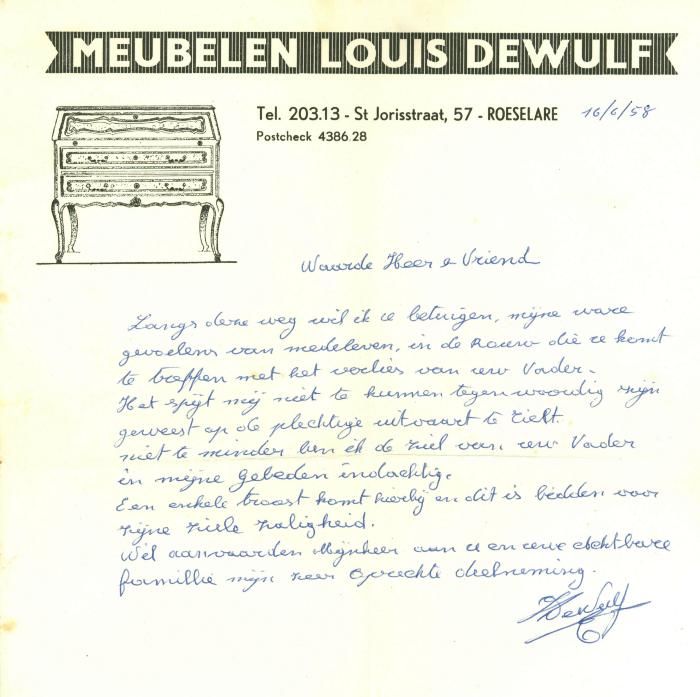 MEUBELEN LOUIS DEWULF
Tel. 203.13 - St Jorisstraat, 57 - ROESELARE 16/6/58
Postcheck 4386.28
Waarde Heer & Vriend
Langs deze weg wil ik U betuigen, mijne ware
gevoelens van medeleven, in de rouw die U komt
te treffen met het verlies van uw Vader.
Het spijt mij niet te kunnen tegenwoordig zijn
geweest op de plechtige uitvaart te Zielt.
niet te minder ben ik de ziel van uw Vader
in mijne Gebeden indachtig.
Een enkele troost komt hierbij en dit is bidden voor
zijne ziele zaligheid.
Wil aanvaarden Mijnheer aan U en uwe achtbare
famillie mijn zeer oprechte deelneming.
Dewulf